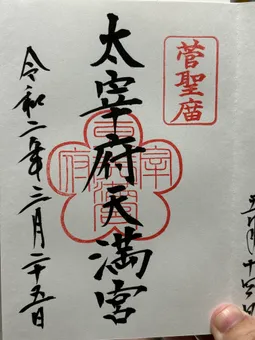 菅聖廟
太宰府天満宮
令和二年三月二十五日